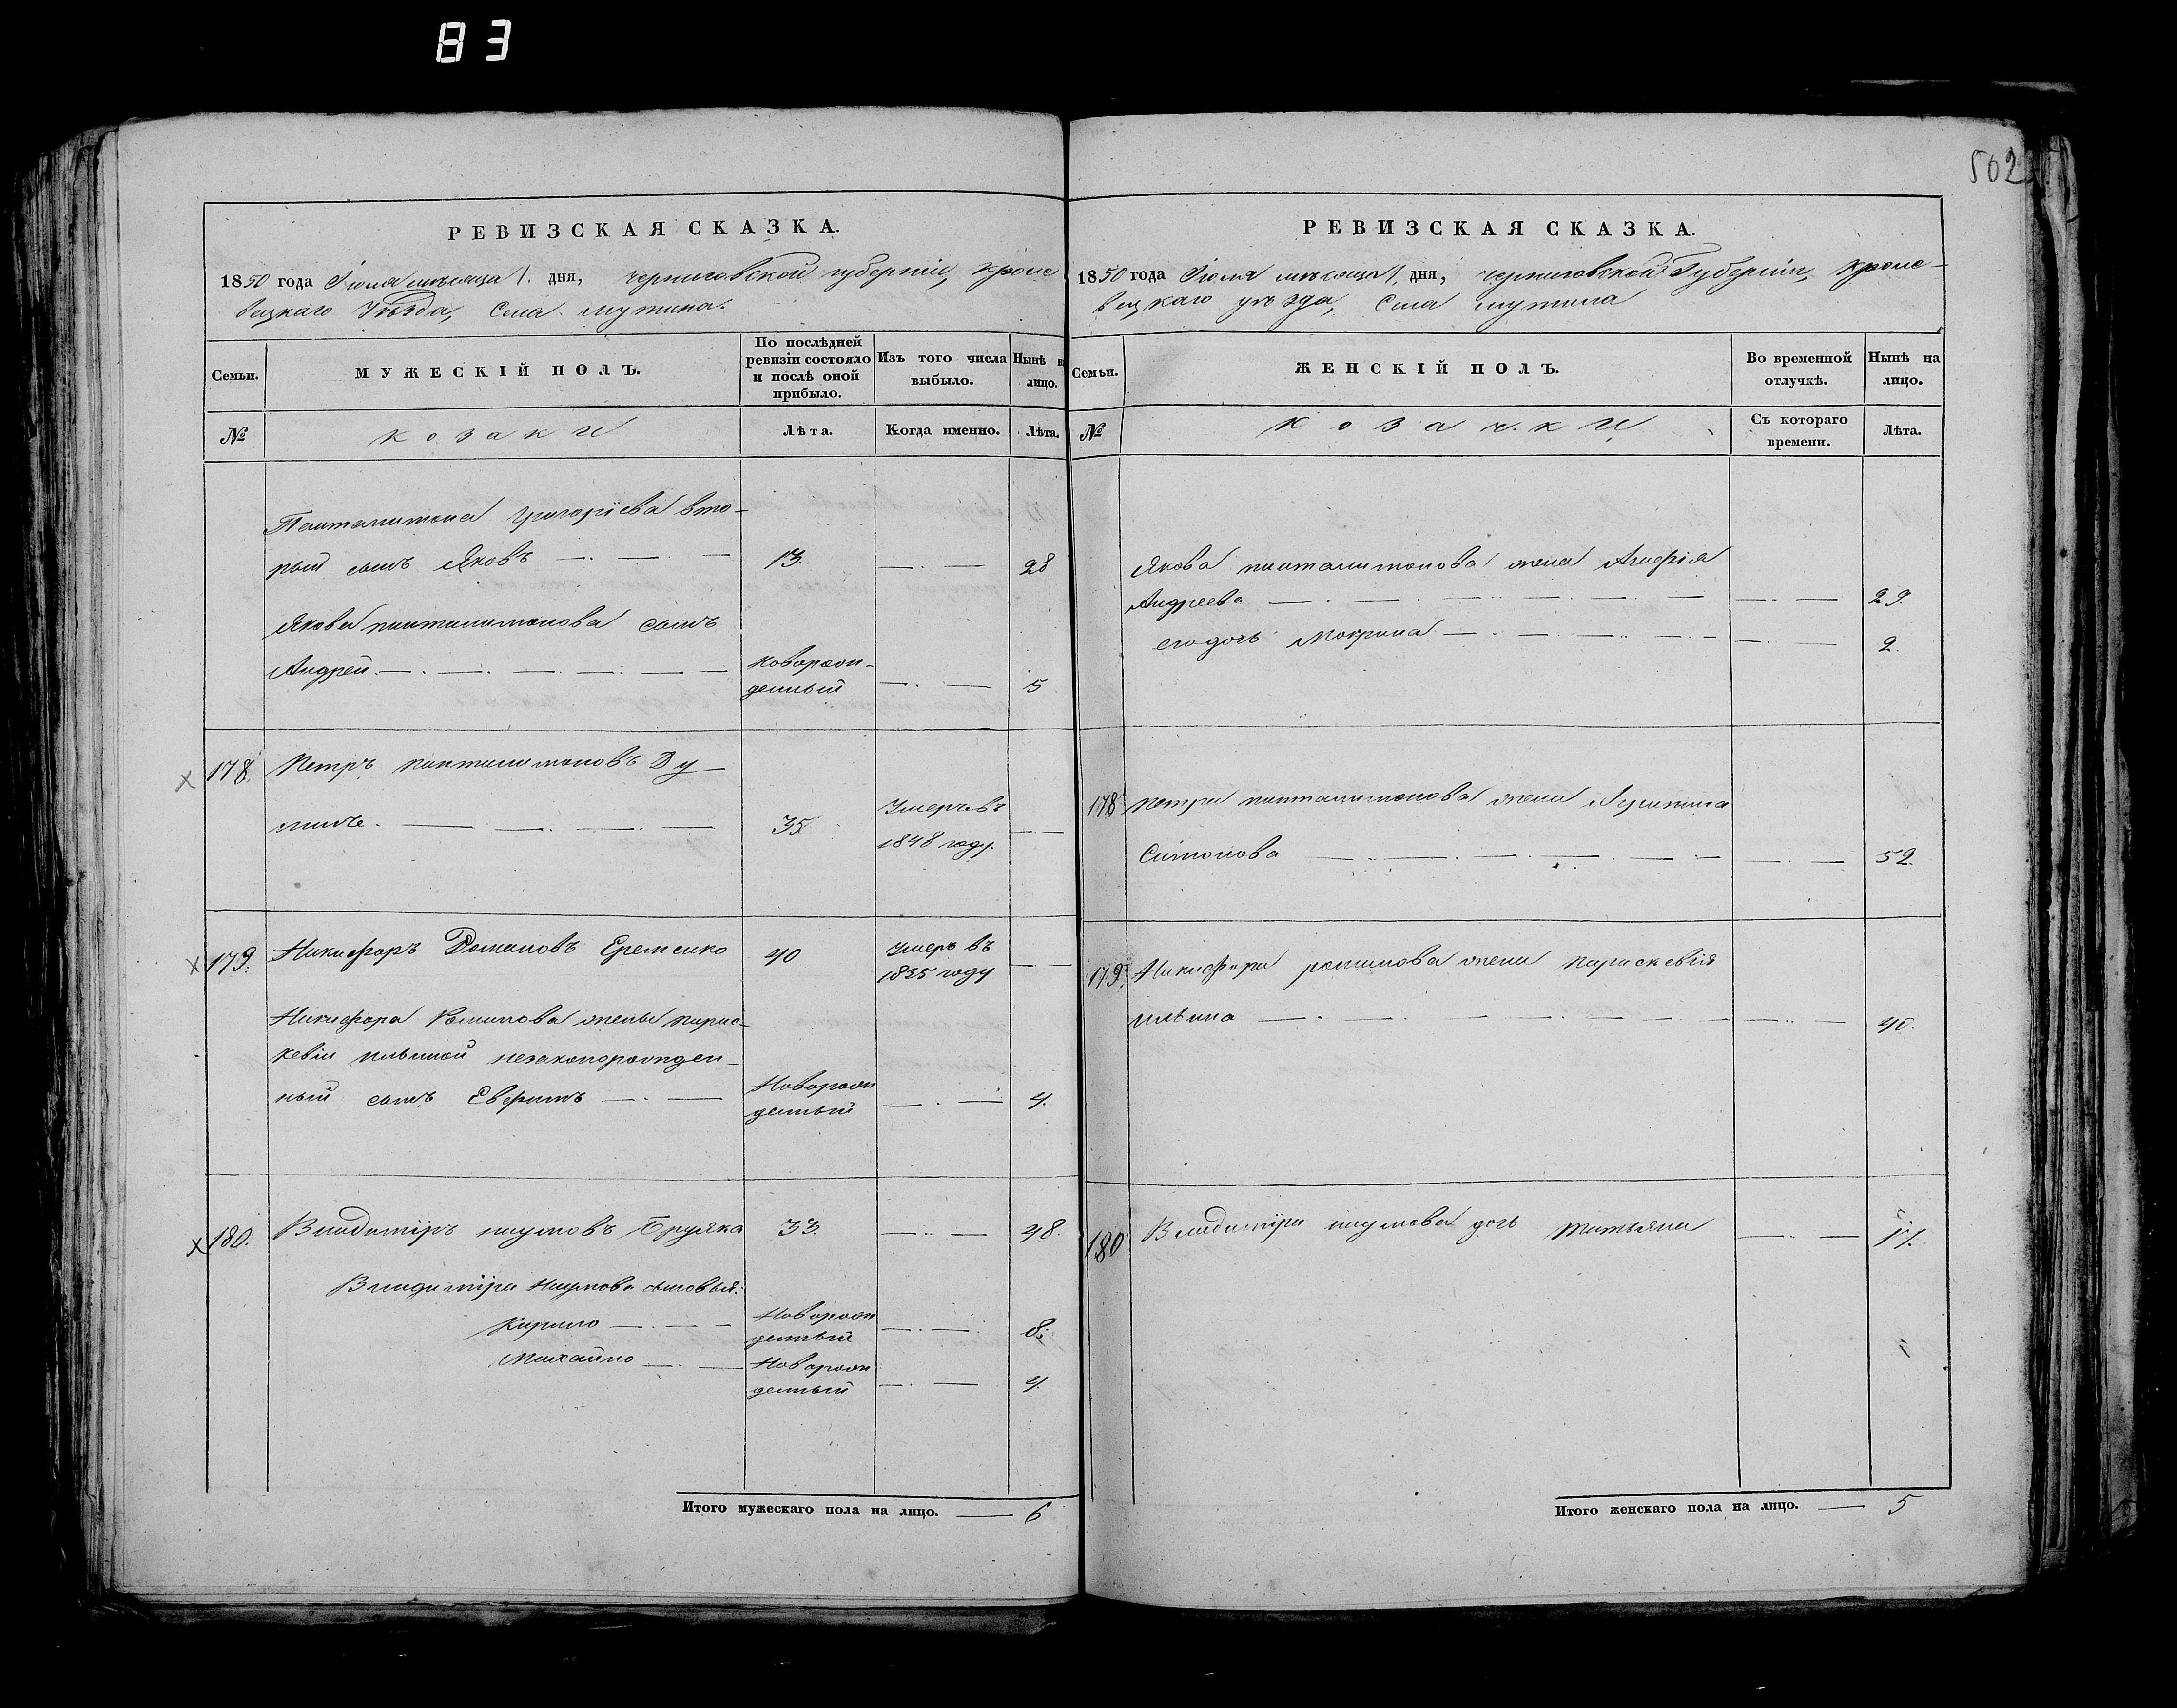 83
502
РЕВИЗСКАЯ СКАЗКА.
1850 года Іюля мѣсяца 1. дня, черниговской губерніи, Кроле-
вецкаго Уѣзда, Села мутина.
Семьи.
МУЖЕСКІЙ ПОЛЪ.
По послѣдней
ревизіи состояло
и послѣ оной
прибыло.
Изъ того числа
выбыло.
Нынѣ н
лицо.
№
козаки
Лѣта.
Когда именно.
Лѣта.
Панталимона Григорієва вто-
рый сынъ Яковъ 13. 28
Якова панталимонова сынъ
Андрей Новорож-
денный 5
178. Петръ панталимоновъ Ду-
35 Умеръ въ
1848 году.
179. Никифоръ Романовъ Еременко 40 Умеръ въ
1835 году
Никифора Романова жены парас-
кевіи ильиной незаконорожден-
ный сынъ Евфимъ Новорож
денный 4.
180. Владимиръ наумовъ Бруяка 33. 48.
Владимира Наумова сыновья:
Кирило Новорож
денный 8.
Михайло Новорож
денный 4.
Итого мужескаго пола на лицо. 6
РЕВИЗСКАЯ СКАЗКА.
1850 года Іюля мѣсяца 1. дня, черниговской Губерніи, Кроле-
вецкаго уѣзда, Села мутина
Семьи.
ЖЕНСКІЙ ПОЛЪ.
Во временной
отлучкѣ.
Нынѣ на
лицо.
№
козачки
Съ котораго
времени.
Лѣта.
Якова панталимонова жена Агафія
Андреева 29.
его дочь Мокрина 2.
178 Петра панталимонова жена
Симонова 52.
179. Никифора романова жена параскевія
ильина 40.
180 Владимира наумова дочь татьяна 17.
Итого женскаго пола на лицо. 5